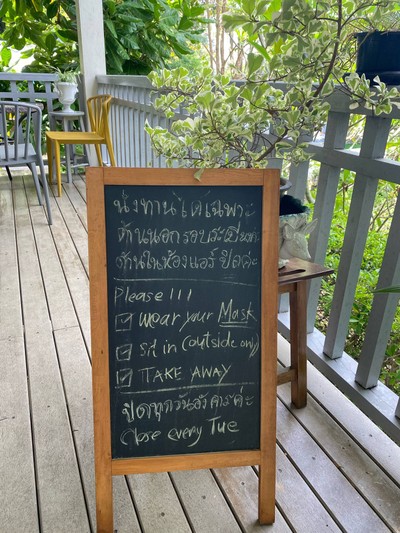 นั่งทานได้เฉพาะ
ด้านนอกรอบระเบียงค่ะ
ด้านในห้องแอร์ ปิดค่ะ
Please!!!
☑ wear your Mask
☑ Sit in (outside only)
☑ TAKE AWAY
ปิดทุกวันอังคารค่ะ
Close every Tue